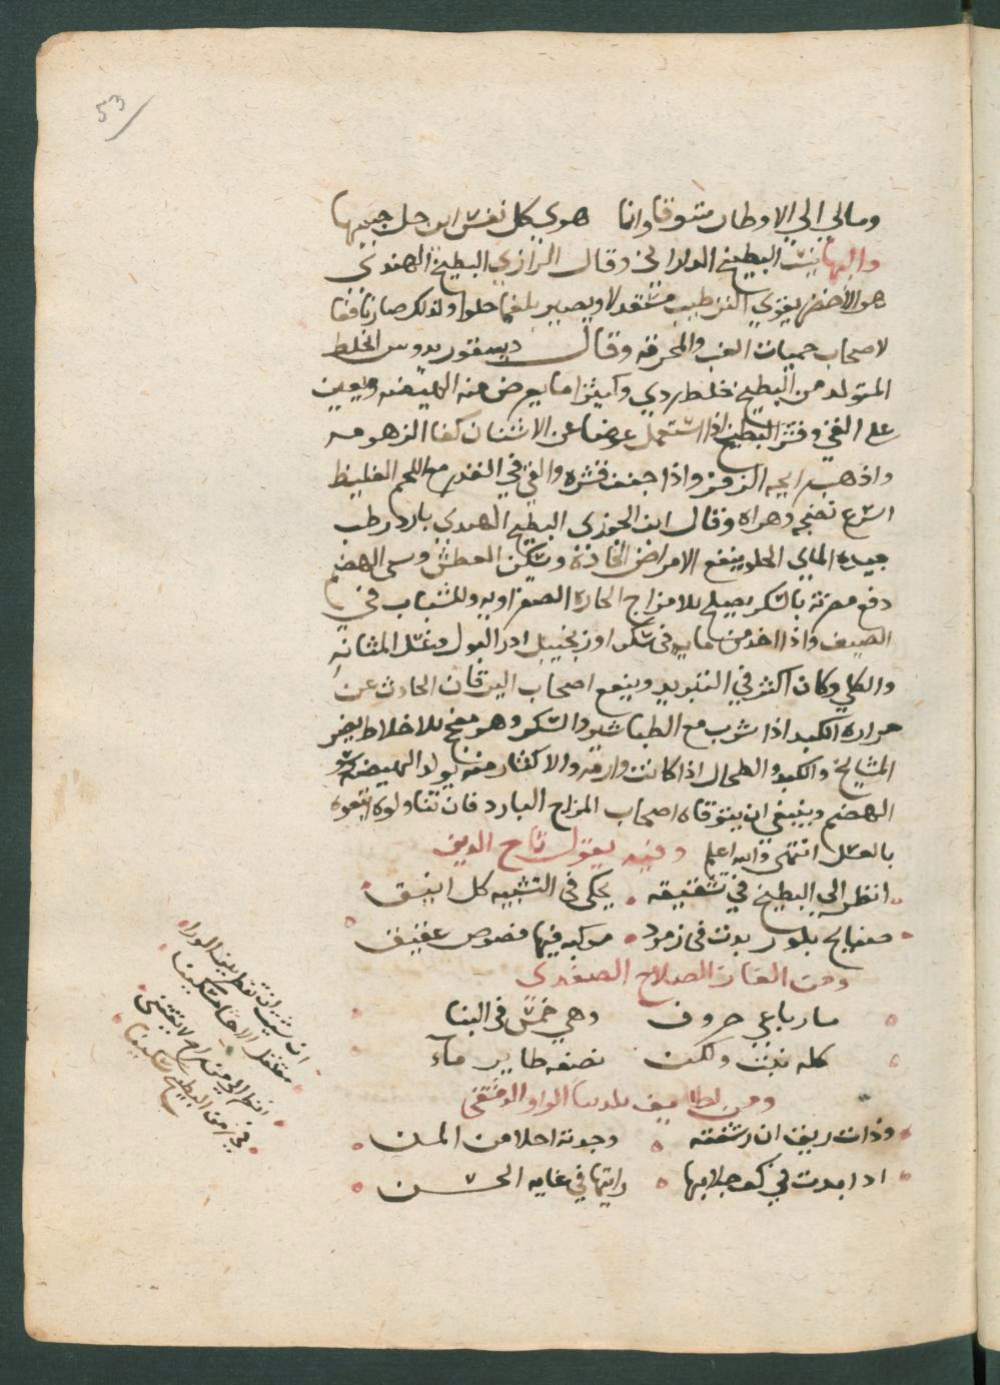 53
ومالي الي الاوطار شوقا وانما هوى كل نفس اين حل حبيبها
والهانيئت البطيخ وقال الرازي البطيخ الهندى
هو الاخضر يقوي معتقد لا ويصير بلغما حلوا ولذلك صار نافعا
لاصحاب حميات الغب والمحرقه وقال ديسقوريدوس الخلط
المتولد من البطيخ خلط ردي وكيثرا ما يعرض منه الهيضه ويعين
على القي وقشر البطيخ اذا استعمل عوضا عن الاشنان كفا الزهومه
واذهب رايحه الزفر واذا جفف قشره والقي في القدر مع اللحم الغليظ
اسرع نضجه وهراه وقال ابن الجوزى البطيخ الهندي بارد رطب
جيده المايي الحلو ينفع الامراض الحاده ويسكن العطش وسى الهضم
دفع مضرته بالسكر يصلح للامزاج الحاره الصفراويه وللشباب في
الصيف واذا اخذ من مايه في سكر او زنجبيل ادر البول وغسل المثانه
والكلي وكان اكثر في التبريد وينفع اصحاب اليرقان الحادث عن
حراره الكبد اذا شرب مع الطباشير والسكر وهو مفج للاخلاط يضر
المشايخ والكبد والطحال اذا كانت وارمه والاكثار منه يولد الهيضه
الهضم وينبغي ان يتوقاه اصحاب المزاج البارد فان تناولوه اتبعوه
بالعسل انتهى والله اعلم وفيه يقول تاج الدين
انظر الى البطيخ في تشقيقه يحكى فى التشبيه كل انيق
صفايح بلور بدت فى زمرد مركبه فيها فصوص عقيق
ومن الغاز الصلاح الصفدى
ما رباعي حروف وهي خمس فى البنا
كله نبت ولكن نصفه طاير ماء
ومن لطايف بلدينا الواوا الدمشقى
وذات ريق ان رشفته وجدته احلا من المن
اذا بدت في كف جلابها رايتها في غايه الحسن
ان شيت انت تقط بين الورا
انظر الى من رام لا ينثنى
فى زمن البطيخ سكينا